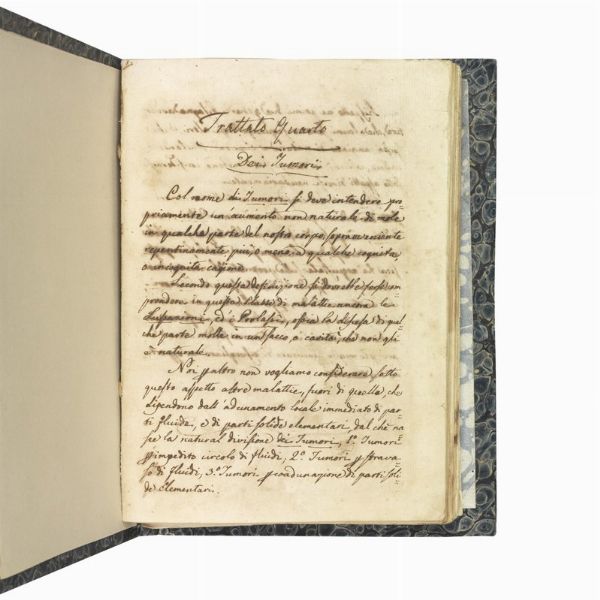 Trattato Quarto
Dei Tumori
Col nome di Tumori si deve intendere pro-
priamente un aumento non naturale di mole
in qualche parte del nostro corpo, sopravveniente
repentinamente più, o meno, a qualche cognita,
o incognita cagione.
Secondo questa definizione si dovrebbe
prendere in questa Classe di malattie ancora le
ed i Prolassi, ossia la discesa di qual-
che parte molle in un sacco, o cavità, che non gli
è naturale.
Noi peraltro non vogliamo considerare sotto
questo aspetto altre malattie, fuori di quelle, che
dipendono dall'adunamento locale immediato di par-
ti fluide, e di parti solide elementari, dal che na
sce la natural divisione dei Tumori, 1.o Tumori
p impedito circolo di fluidi, 2.o Tumori p strava-
so di fluidi, 3.o Tumori p coadunazione di parti soli-
de elementari.